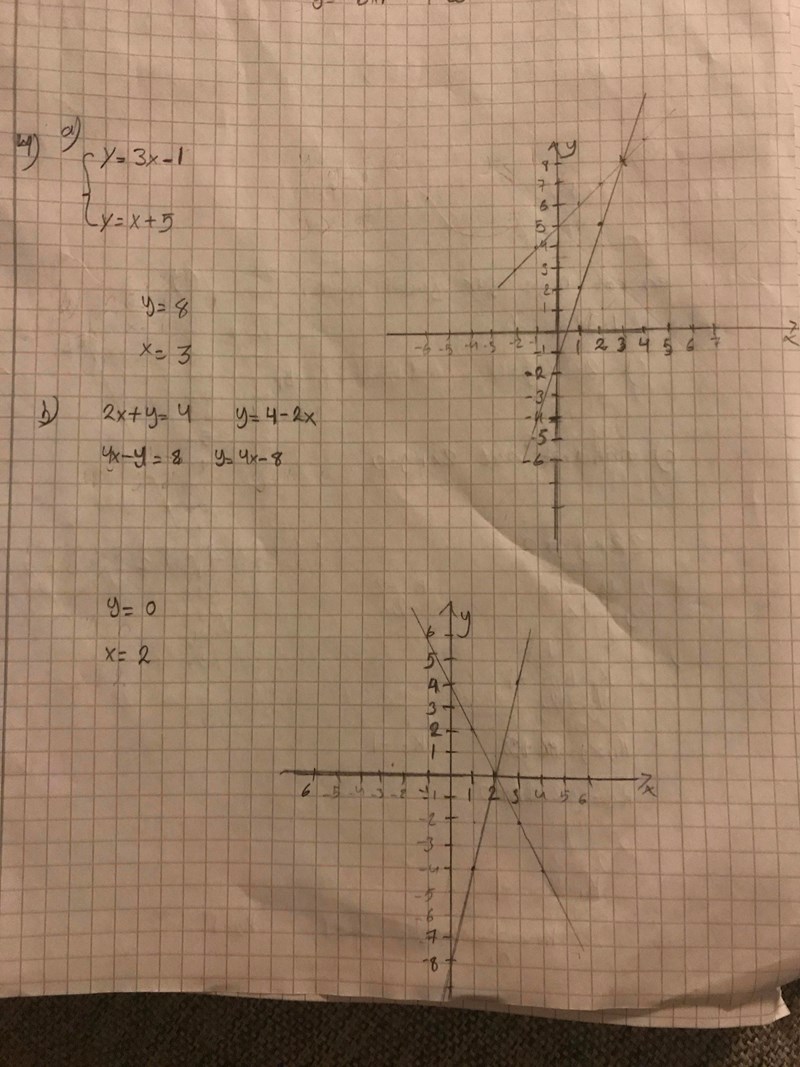 a)
y=3x-1
y=x+5
y=8
x=3
b) 2x+y=4 y=4-2x
4x-y=8 y=4x-8
y=0
x=2
y
8
7
6
5
4
3
2
1
-6 -5 -4 -3 -2 -1 1 2 3 4 5 6 7 x
-1
-2
-3
-4
-5
-6
y
6
5
4
3
2
1
6 -5 -4 -3 -2 -1 1 2 3 4 5 6 x
-2
-3
-4
-5
-6
7
-8